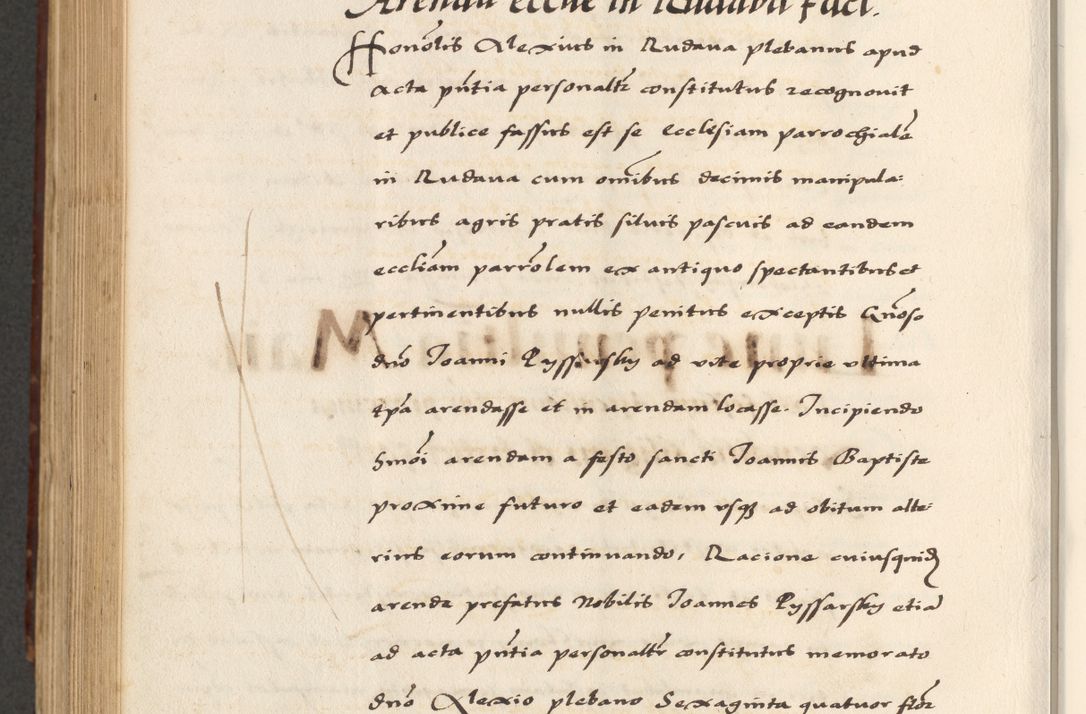 Arendam eccłie in Rudava faci.
Honoł̃is Alexius in Rudava plebanus apud
acta pñtia personaltr̃ constitutus recognovit
et publice fassus est se Ecclesiam parrochialẽ
in Rudava cum om̃ibus decimis manipula-
ribus agris pratis silvis pascuis ad eandem
eccliãm parrolem ex antiquo spectantibus et
pertinentibus nullis penitus exceptis Gñoso
dño Joanni Ryssarsky ad vite proprie ultima
tpã arendasse et in arendam locasse. Incipiendo
hmõi arendam a festo sancti Joannis Baptiste
proxime futuro et eadem usq3 ad obitum alte-
rius eorum continuando, Racione cuiusquid
arende prefatus Nobilis Joannes Ryssarsky etiã
ad acta pñtia personaltr̃ constitutus memorato
dño Alexio plebano Sexaginta quatuor flor̃